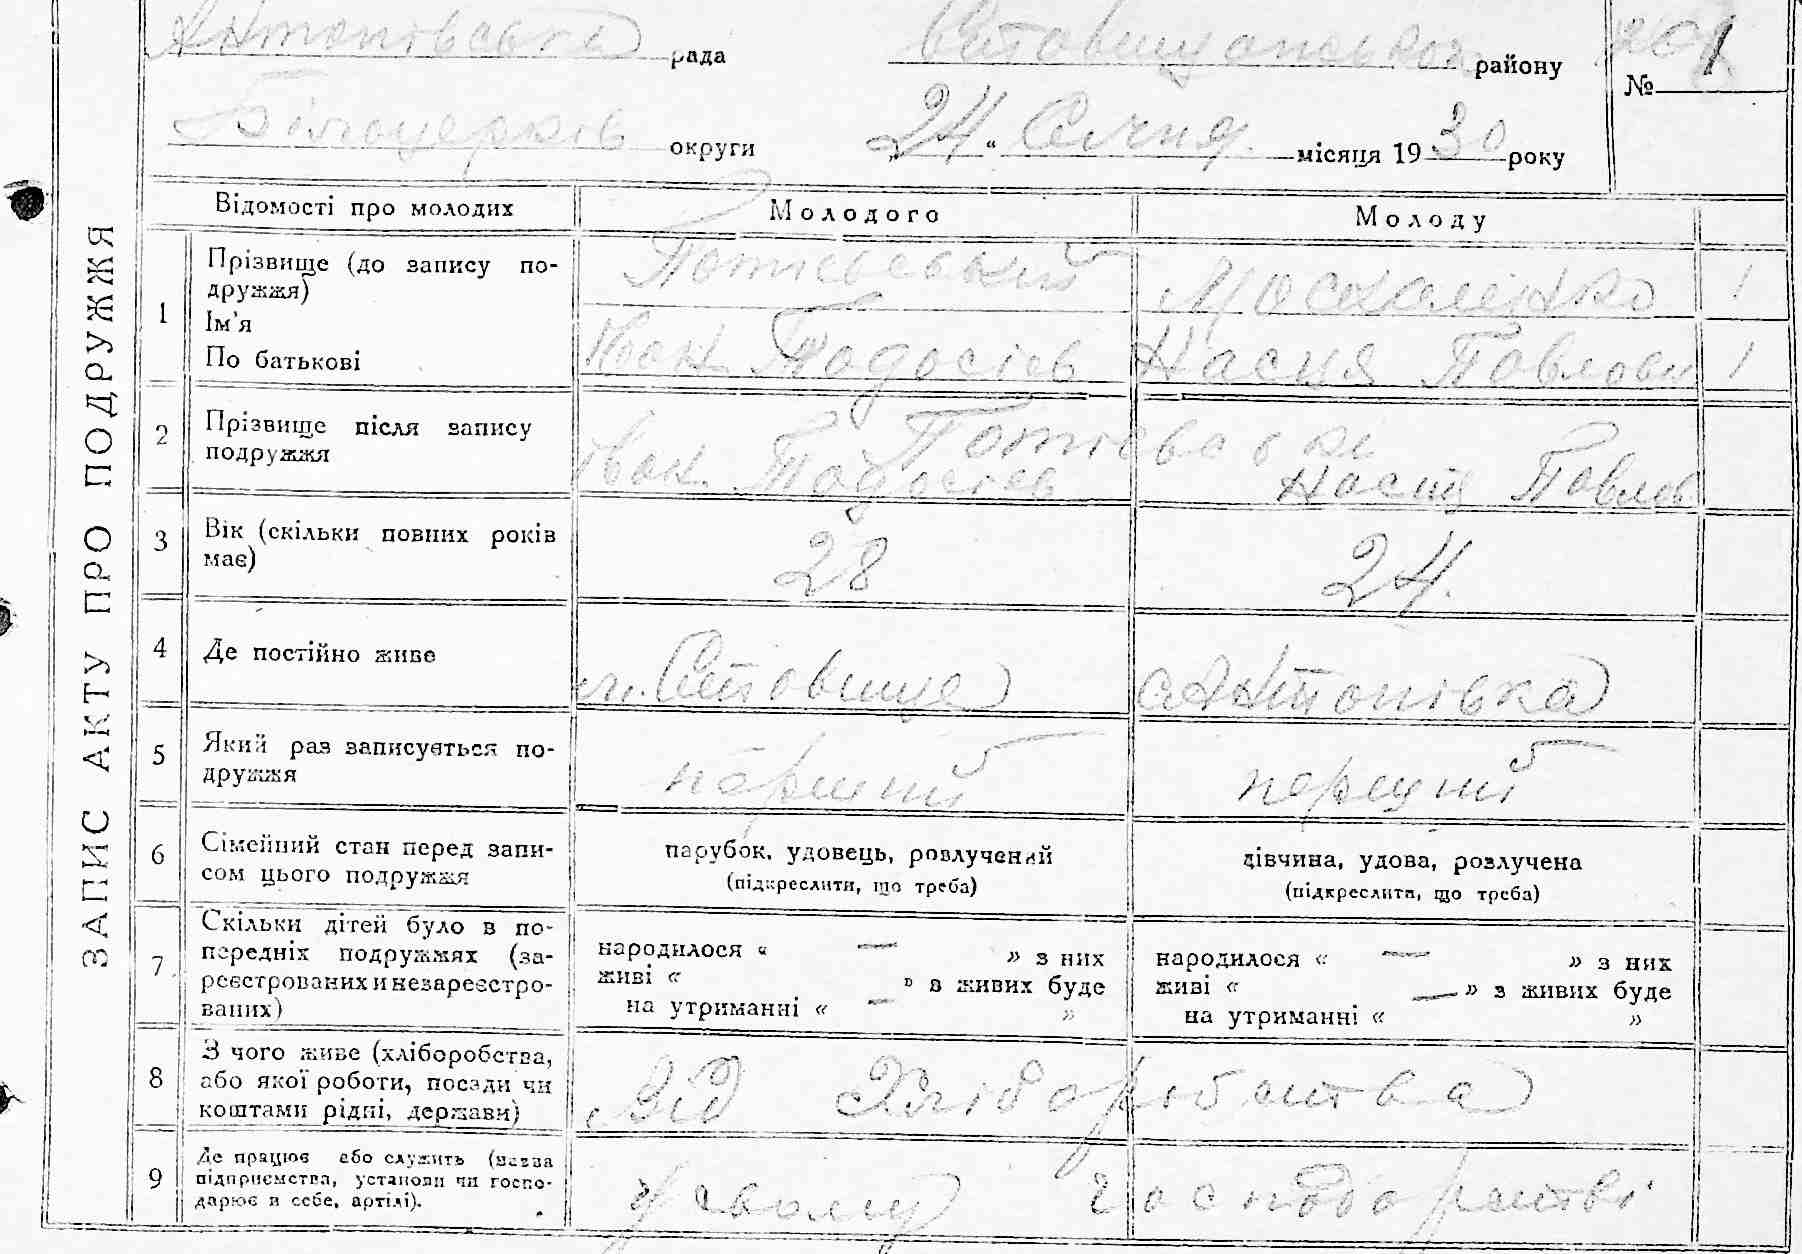 Антонівська рада Ставищанського району № 1
Білоцерків округи „24“ Січня місяця 1930 року
ЗАПИС АКТУ ПРО ПОДРУЖЖЯ
Відомості про молодих Молодого Молоду
1 Прізвище (до запису по-
дружжя)
Ім'я
По батькові
Потієвський Москаленко
Іван Тодосієв Насця Павлови
2 Прізвище після запису
подружжя
Потієвські
Іван Тодосієв Насця Павлов
3 Вік (скільки повних років
має)
28 24.
4 Де постійно живе
м. Ставище с Антонівка
5 Який раз записується по-
дружжя
перший перший
6 Сімейний стан перед запи-
сом цього подружжя
парубок, удовець, розлучений
(підкреслити, що треба)
дівчина, удова, розлучена
(підкреслити, що треба)
7 Скільки дітей було в по-
передніх подружжях (за-
реєстрованих и незареєстро-
ваних)
народилося « — » з них
живі « » з живих буде
на утриманні « — »
народилося « — » з них
живі « — » з живих буде
на утриманні « »
8 З чого живе (хліборобства,
або якої роботи, посади чи
коштами рідні, держави)
Від Хліборобства
9 Де працює або служить (назва
підприємства, установи чи госпо-
дарює в себе, артілі).
У своему господарстві